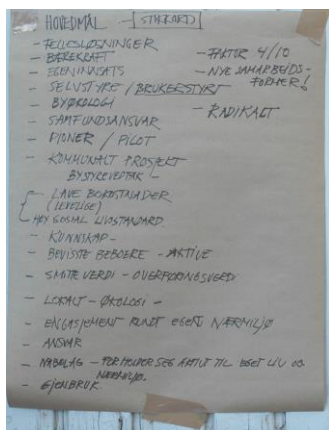 HOVEDMÅL - [STIKKORD]
- FELLESLØSNINGER
- BÆREKRAFT
- EGENINNSATS
- SELVSTYRE / BRUKERSTYRT
- BYØKOLOGI
- SAMFUNDSANSVAR
- PIONER / PILOT
- KOMMUNALT PROSJEKT
BYSTYREVEDTAK -
- LAVE BOKOSTNADER
(LEVELIGE)
HØY SOSIAL LIVSTANDARD.
- KUNNSKAP -
- BEVISSTE BEBOERE - AKTIVE
- SMITTEVERDI - OVERFØRINGSVERDI
- LOKALT - ØKOLOGI -
- ENGASJEMENT RUNDT EGET NÆRMILJØ
- ANSVAR
- NABOLAG - FORHOLDER SEG AKTIVT TIL EGET LIV OG
NÆRMILJØ.
- GJENBRUK
- FAKTOR 4/10
- NYE SAMARBEIDS-
FORMER!
- RADIKALT